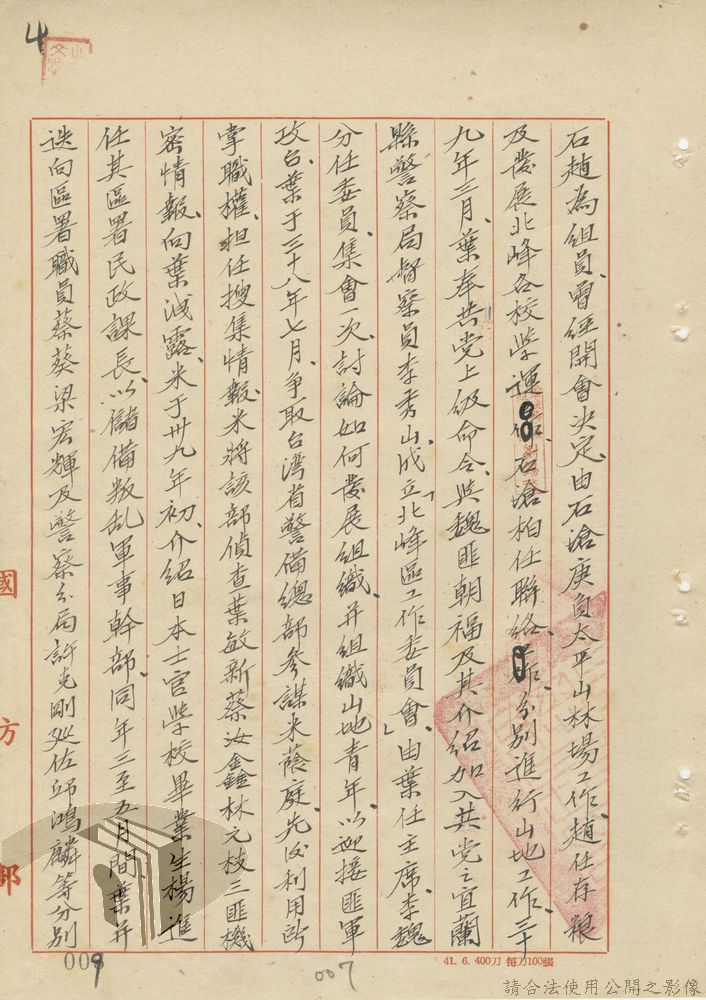 4
石趙為組員、曾經開會決定、由石滄庚負太平山林場工作、趙任存粮
及發展北峰各校学運、石滄柏任聯絡、分別進行山地工作、三十
九年三月、葉奉共党上級命令、與魏匪朝福及其介紹加入共党之宜蘭
縣警察局督察員李秀山、成立「北峰區工作委員會」由葉任主席、李魏
分任委員、集會一次、討論如何發展組織、并組織山地青年、以迎接匪軍
攻台、葉于三十八年七月、争取台湾省警備總部參謀米蔭庭、先後利用所
掌職權、担任搜集情報、米將該部偵查葉敏新蔡汝鑫林元枝三匪機
密情報、向葉洩露、米于卅九年初、介紹日本士官学校畢業生楊進
任其區署民政課長、以儲備叛乱軍事幹部、同年三至五月間、葉并
迭向區署職員蔡葵梁宏輝及警察分局許克剛處佐邱鴻麟等分別
國
方
部
009
007
41. 6. 400刀 每刀100張
請合法使用公開之影像